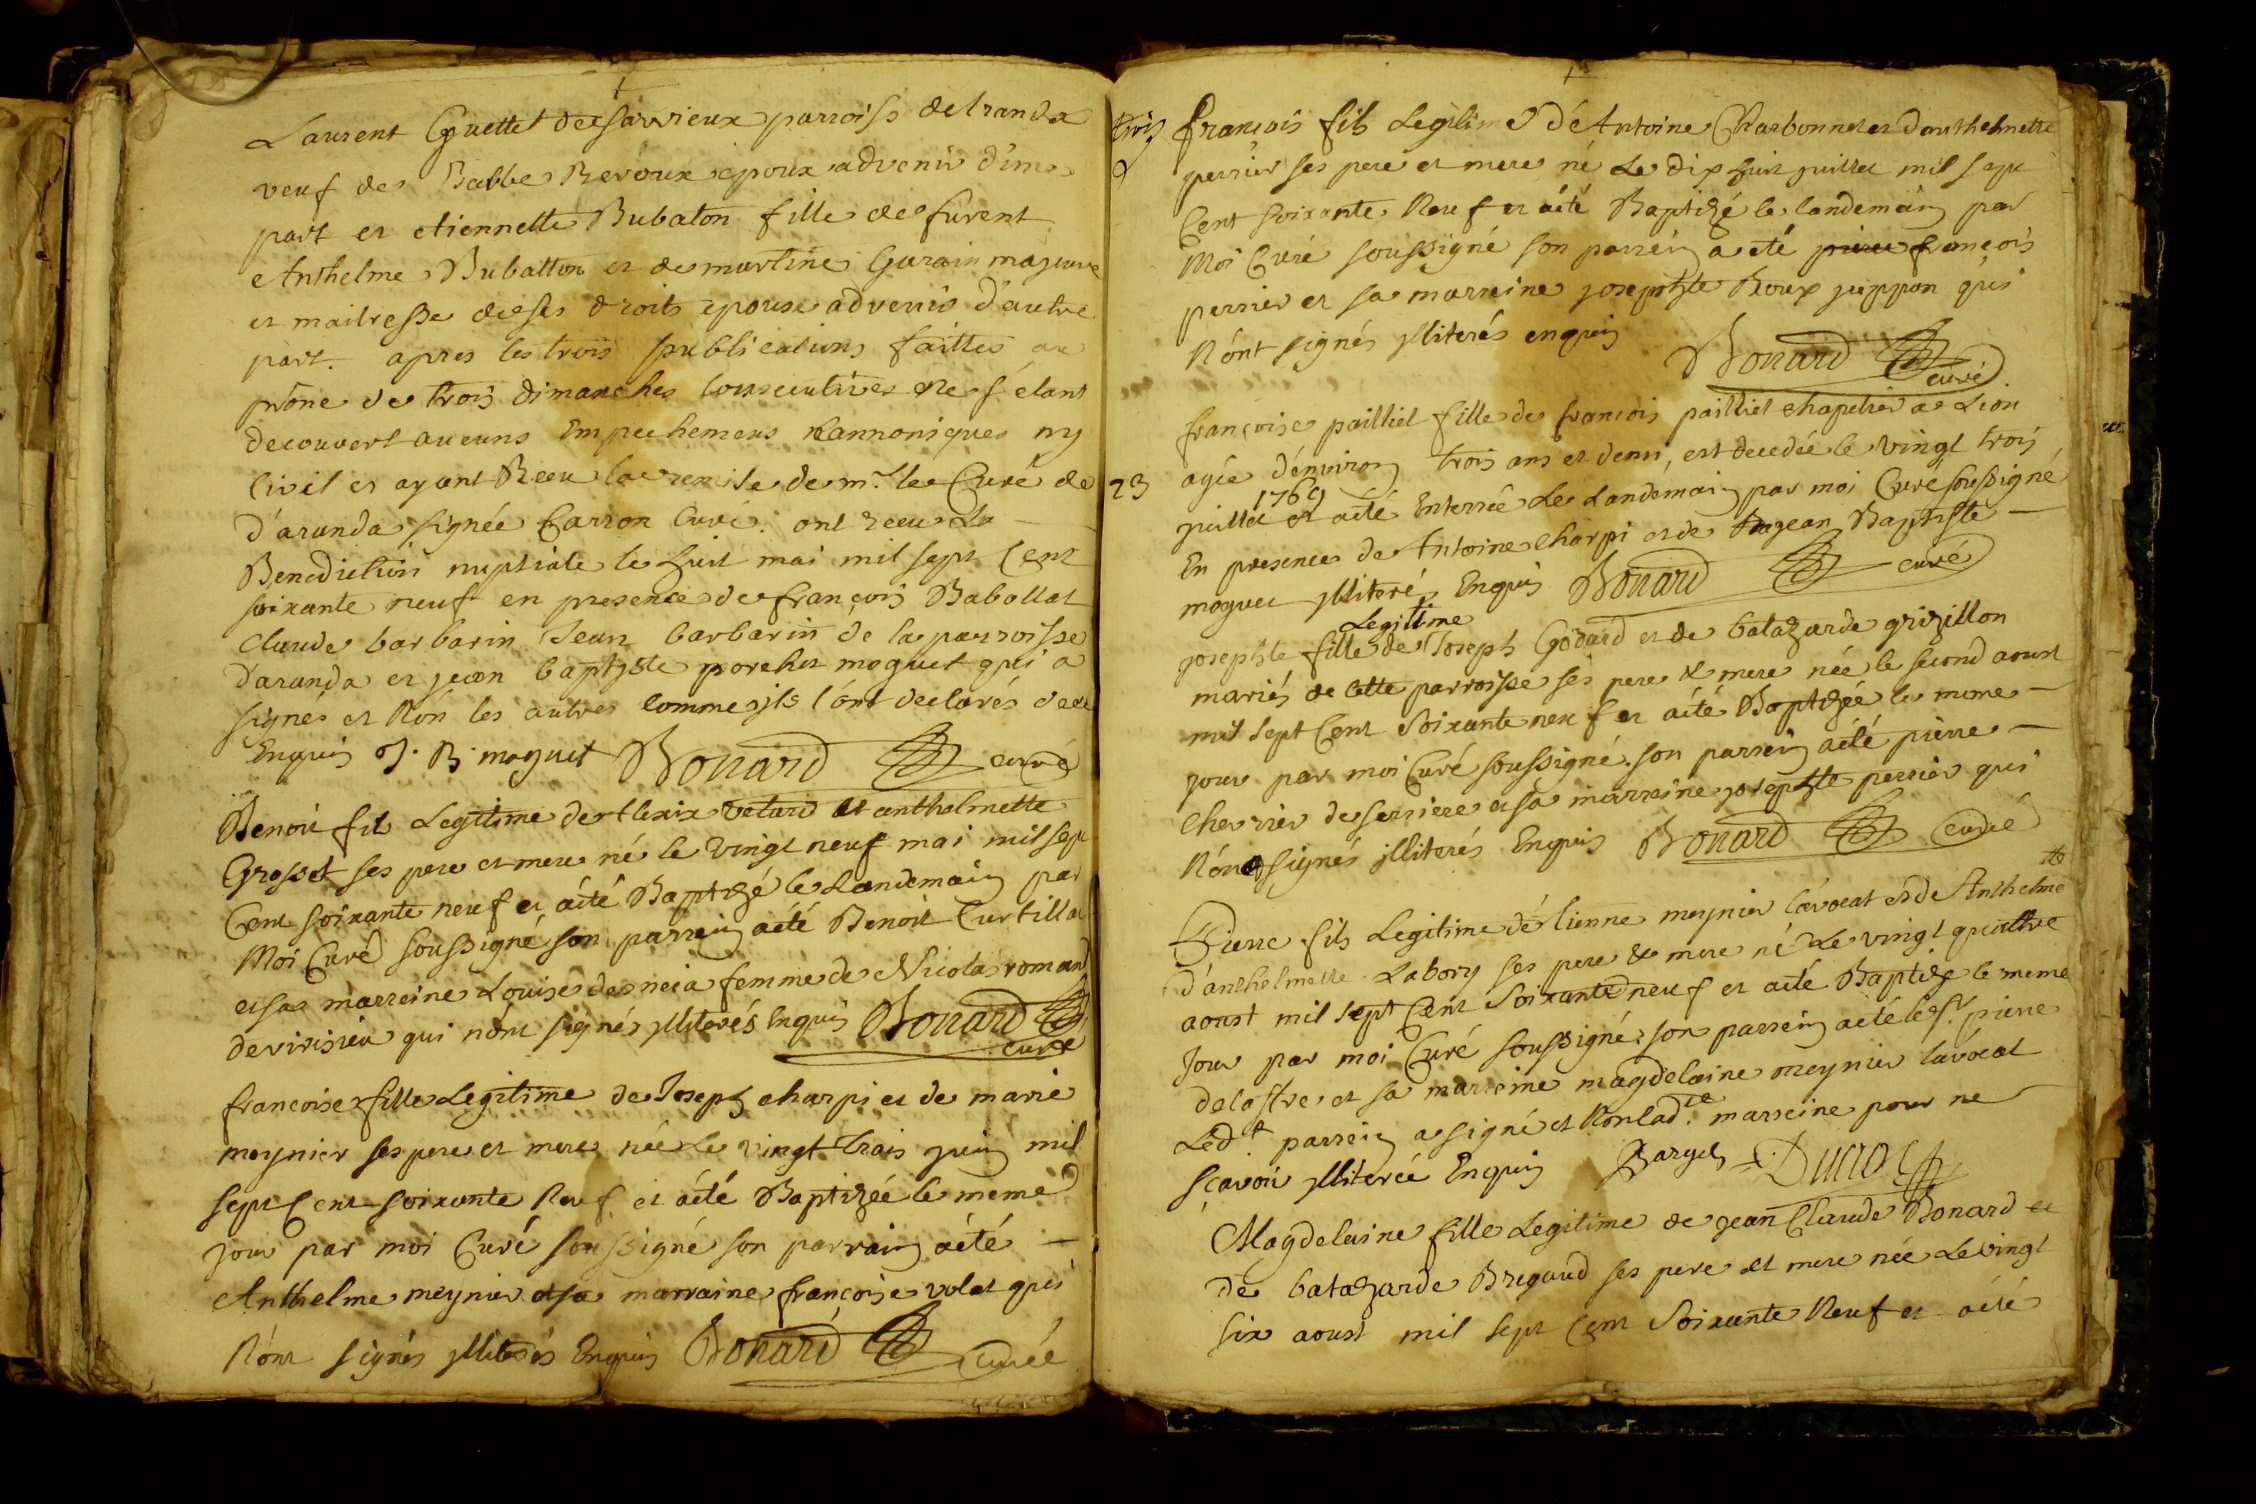 Laurent Guettet de Sarrieux parroiss de tranda
veuf de Babbe Beroux epoux advenir d'une
part et etiennette Bubaton fille de furent
Anthelme Bubatton et de martine Gurain majeure
et maitresse de ses droits epouse advenir d'autre
part. apres les trois publications faittes au
prône de trois dimanches consecutives ne s'étant
decouvert aucuns Empechemens kannoniques ny
Civil et ayant Receu la remise de mr. le Curé de
d'aranda signée Carron Curé. ont receu La
Benediction nuptiale le huit mai mil sept Cent
soixante neuf en presence de françois Babollat
Claude barbarin Jean barbarin de la parroisse
d'aranda et jean baptyste porchet moguet qui a
signés et Non les autres comme ils l'ont declarés de ce
Enquis J. B. moguet Bonard curé
Benoit fil Legitime de Alexix vetard et anthelmette
Grosset ses pere et mere né le vingt neuf mai mil sept
Cent soixante neuf et aété Baptizé le Landemain par
Moi Curé soussigné, son parrein aété Benoit Curtillat
et sa marreine Louise de neia femme de Nicolas roman
de virisieu qui n'ont signés jlliterés Enquis Bonard
curé
francoise fille Legitime de Joseph charpi et de marie
meynier ses pere et mere née Le vingt trois juin mil
sept Cent soixante Neuf et aété Baptizée le meme
jour par moi Curé soussigné son parrain aété
Anthelme meynier et sa marraine françoise volat qui
N'ont signés jlliterés Enquis Bonard Curé
trois françois fils Legitime d'Antoine Charbonnet et d'anthelmette
perrier ses pere et mere né Le dix huit juillet mil sept
Cent soixante Neuf et aété Baptizé le landemain par
Moi Curé soussigné son parrein a eté pierre françois
perrier et sa marreine josephte Roux juppon qui
N'ont signés jlliterés enquis Bonard
curé
françoise pailliet fille de francois pailliet chapelier a Lion
agée d'environ trois ans et demi, est decedée le vingt trois
23 juillet 1769 et aété Enterrée Le Landemain par moi Curé soussigné
En presence de Antoine charpi et de jean Baptiste
moguet jlliteré Enquis Bonard curé
Legitime
josephte fille de Joseph Godard et de batazarde grizillon
mariés de cette parroisse ses pere & mere née le second aoust
mil sept Cent soixante neuf et aété Baptizée le meme
jour par moi Curé soussigné. son parrein aété pierre
cherrier de serriere et sa marreine josephte perrier qui
N'ont signés jlliterés Enquis Bonard Curé
Pierre fils Legitime d'étienne meynier l'avocat et de Anthelme tte
d'anthelmette Labory ses pere & mere né Le vingt quattre
aoust mil sept Cent soixante neuf et aété Baptize le meme
Jour par moi Curé soussigné: son parrein aété le sr. pierre
delastre et sa marreine magdelaine meynier lavocat
Led.t parrein a signé et Non lad.te marreine pour ne
sçavoir jlliterée Enquis Ducrot
Magdelaine fille Legitime de jean Claude Bonard et
de batazarde Bregand ses pere et mere née Le vingt
six aoust mil sept Cent Soixante Neuf et aété